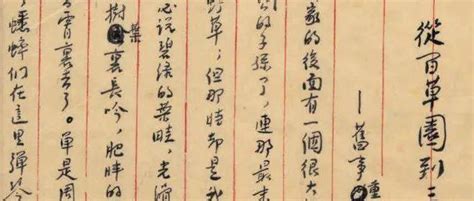 從百草園到三
——舊事重
家的後面有一個很大
公的子孫了，連那最末
野草；但那時卻是我
必說碧綠的菜畦，光滑
樹葉裏長吟，肥胖的
霄裏去了。單是周
蟋蟀們在這里彈琴